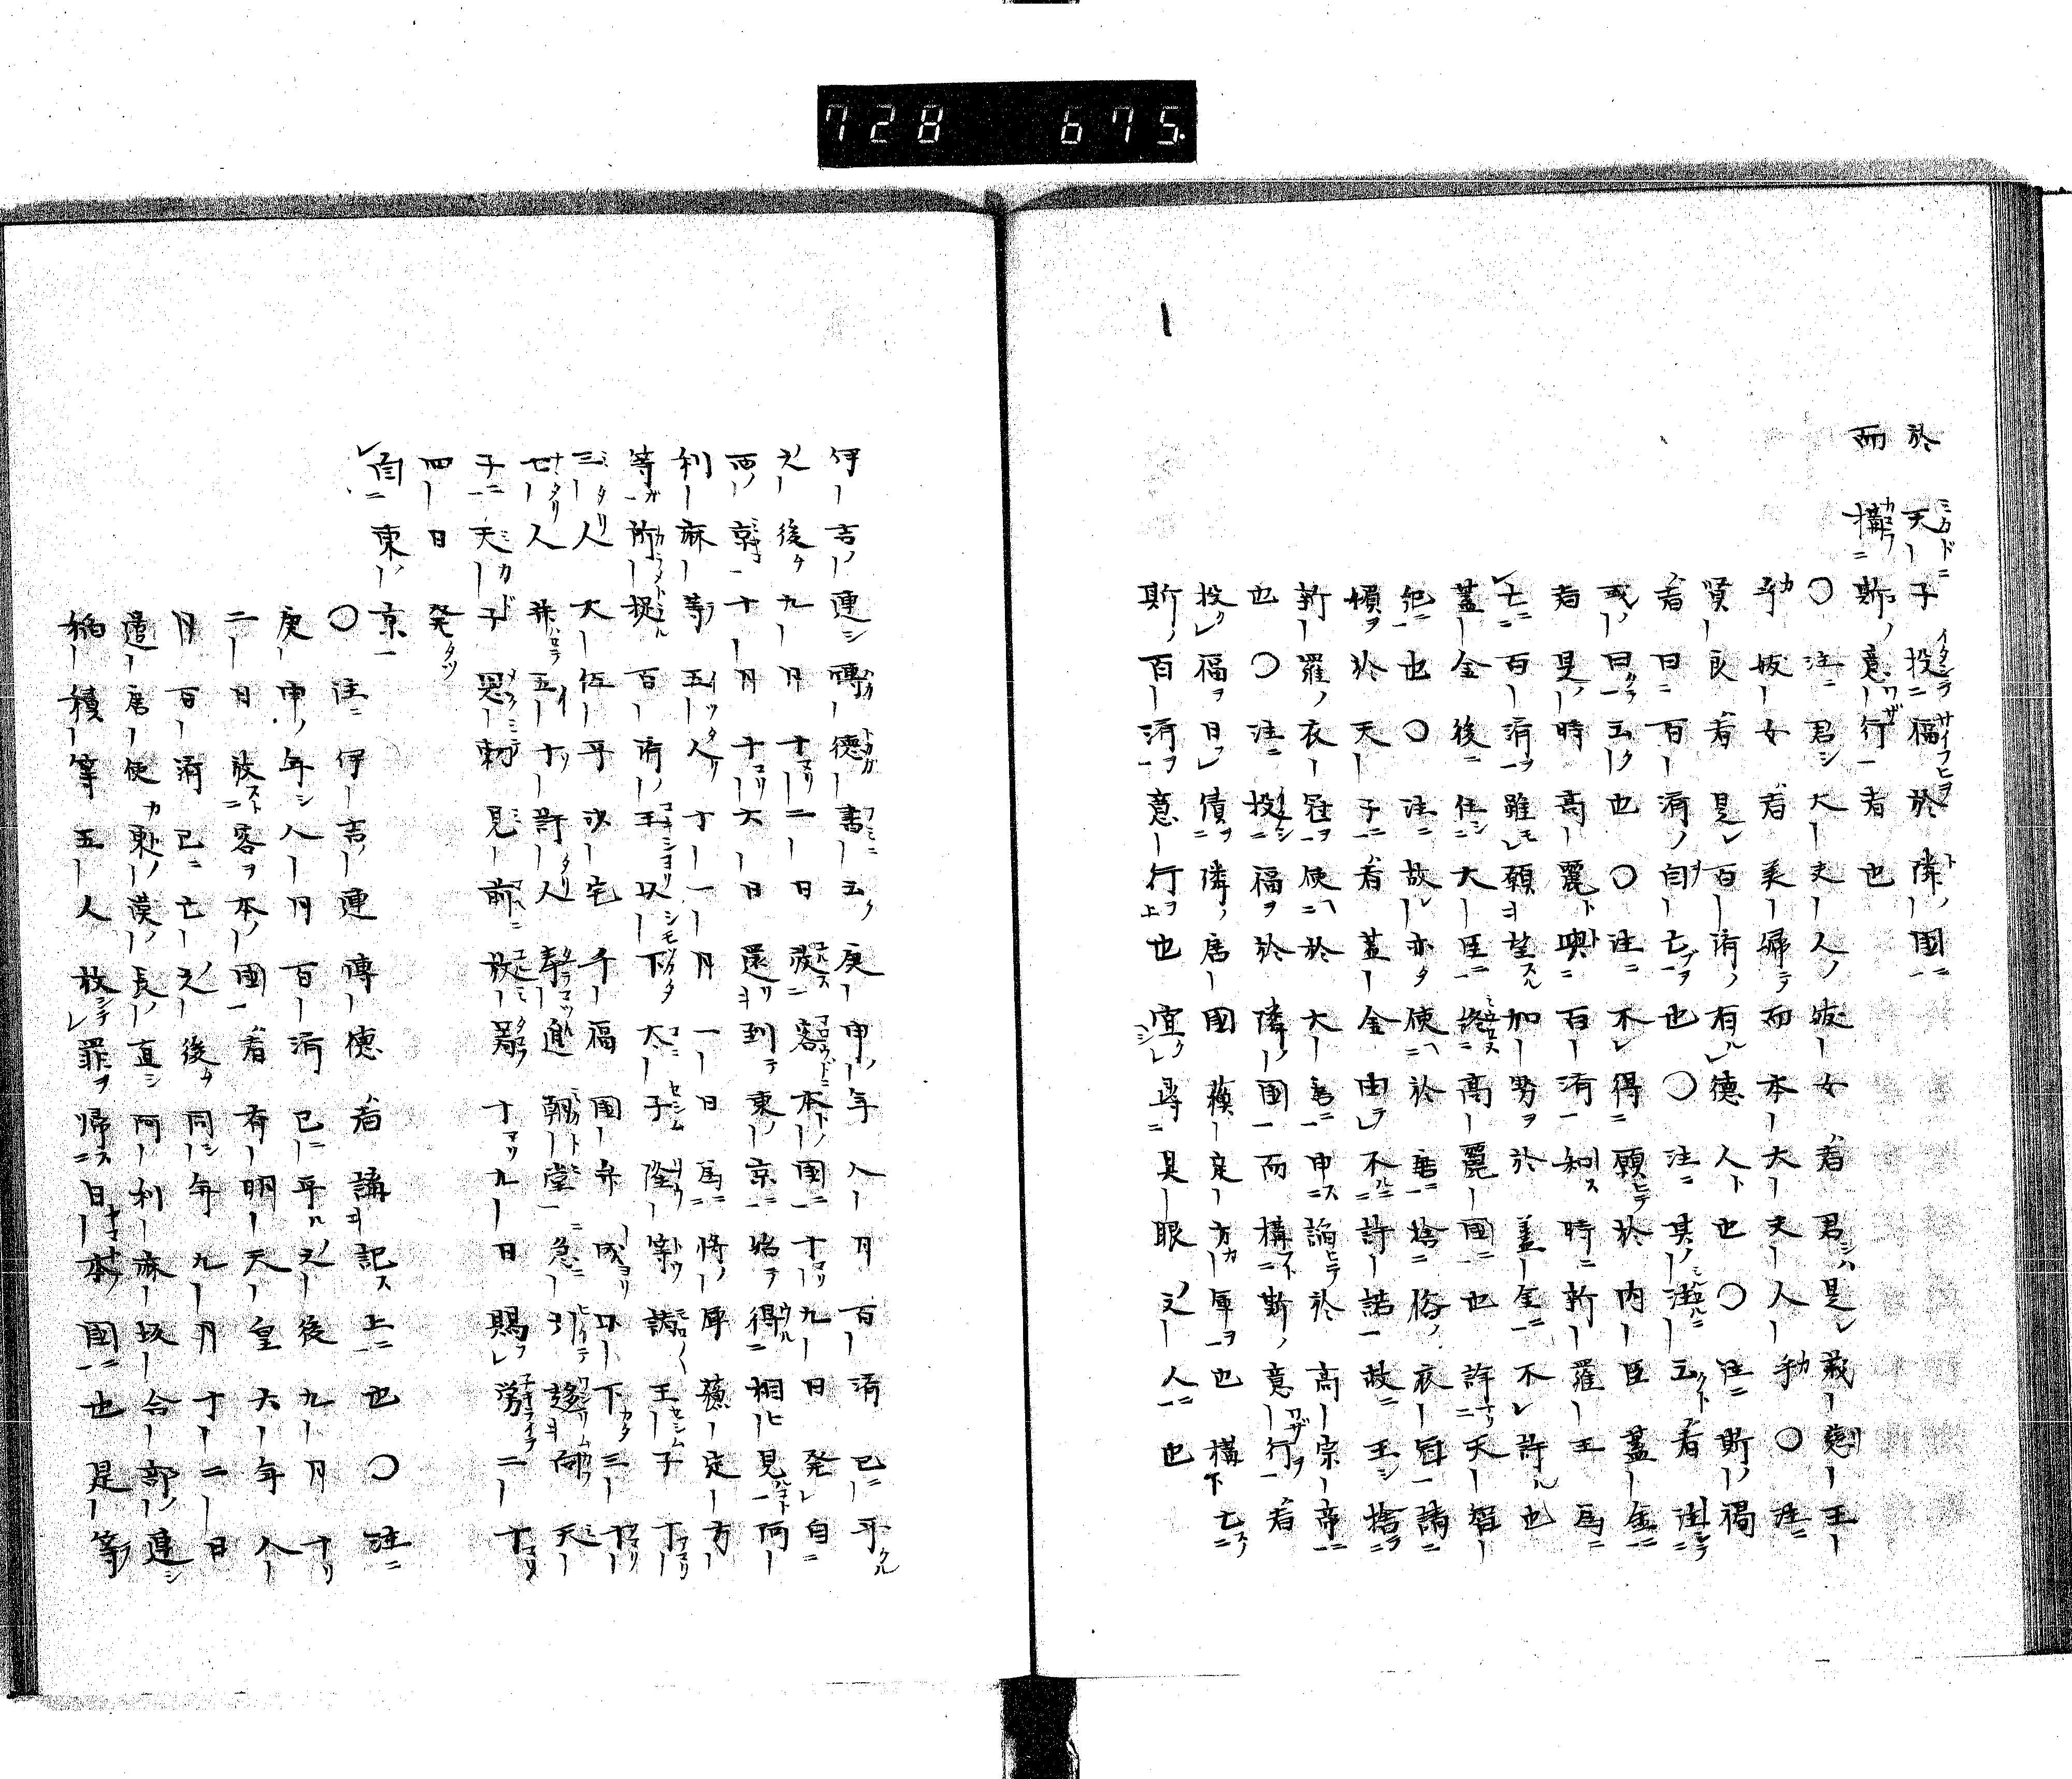 728 675
於天子投福於隣國
而構斯意行者也
〇注君大夫人妖女者君是義慈王
妖女者美婦而本大夫人〇注
賢良者是百濟有德人也〇注斯禍
者曰百濟自亡也〇注其注云者
或曰云也〇注不得願於内臣蓋金
者是時高麗與百濟和時新羅王
亡百濟雖願望加勞於蓋金不許也
蓋金後任大臣高麗國也許天智
紀也〇注故亦使於唐捨俗衣冠請
媚於天子者蓋金由不許詰故王捨
新羅衣冠使於大唐申諂於高宗帝
也〇注投福於隣國而構斯意行者
投福曰債隣唐國蘇定方軍也構亡
斯百濟意行也宜尋具眼之人也
伊吉連博德書云庚申年八月百濟已平
之後九月十二日放客本國十九日発自
西京十月十六日還到東京始得相見阿
利麻等五人十一月一日為將軍蘇定方
等所捉百濟王以下太子隆等諸王子十
三人大佐平沙宅千福國弁成以下三十
七人并五十許人奉進朝堂急引趍向天
子天子恩勅見前放著十九日賜勞二十
四日発
自東京
〇注伊吉連博德者講記上也〇注
庚申年八月百濟已平之後九月十
二日放客本國者有明天皇六年八
月百濟已亡之後同年九月十二日
遣唐使東漢長直阿利麻坂合部連
稲積等五人放罪帰日本國也是等